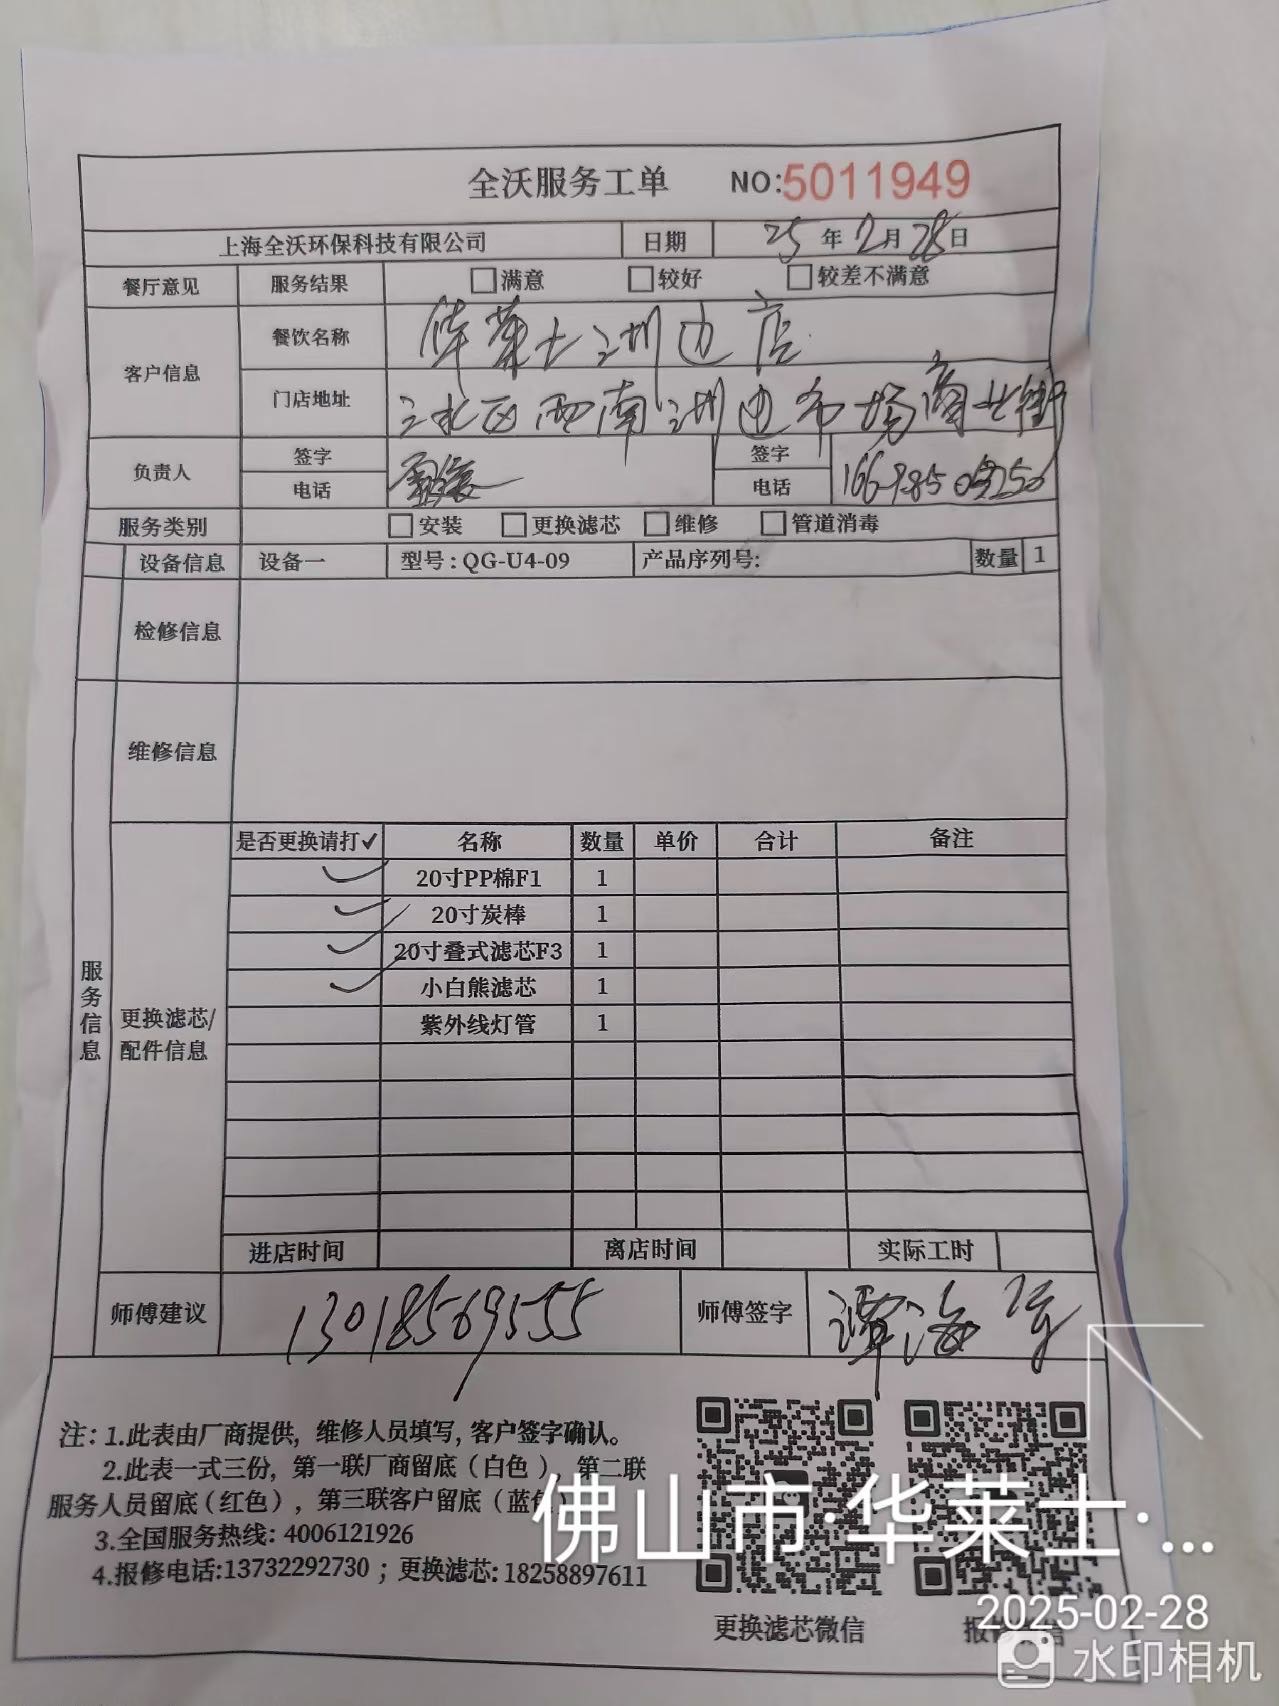 全沃服务工单 NO:5011949
上海全沃环保科技有限公司 日期 25年2月28日
餐厅意见 服务结果 □满意 □较好 □较差不满意
客户信息 餐饮名称 华莱士洲边店
门店地址 三水区西南洲边布场商业街
负责人 签字 签字
电话 电话
服务类别 □安装 □更换滤芯 □维修 □管道消毒
设备信息 设备一 型号:QG-U4-09 产品序列号: 数量 1
检修信息
维修信息
服务信息
更换滤芯/
配件信息
是否更换请打✓ 名称 数量 单价 合计 备注
✓ 20寸PP棉F1 1
✓ 20寸炭棒 1
✓ 20寸叠式滤芯F3 1
✓ 小白熊滤芯 1
紫外线灯管 1
进店时间 离店时间 实际工时
师傅建议 13018569555 师傅签字 谭海
注:1.此表由厂商提供,维修人员填写,客户签字确认。
2.此表一式三份,第一联厂商留底(白色),第二联
服务人员留底(红色),第三联客户留底(蓝色)
3.全国服务热线:4006121926
4.报修电话:13732292730;更换滤芯:18258897611
更换滤芯微信
佛山市·华莱士·...
2025-02-28
水印相机